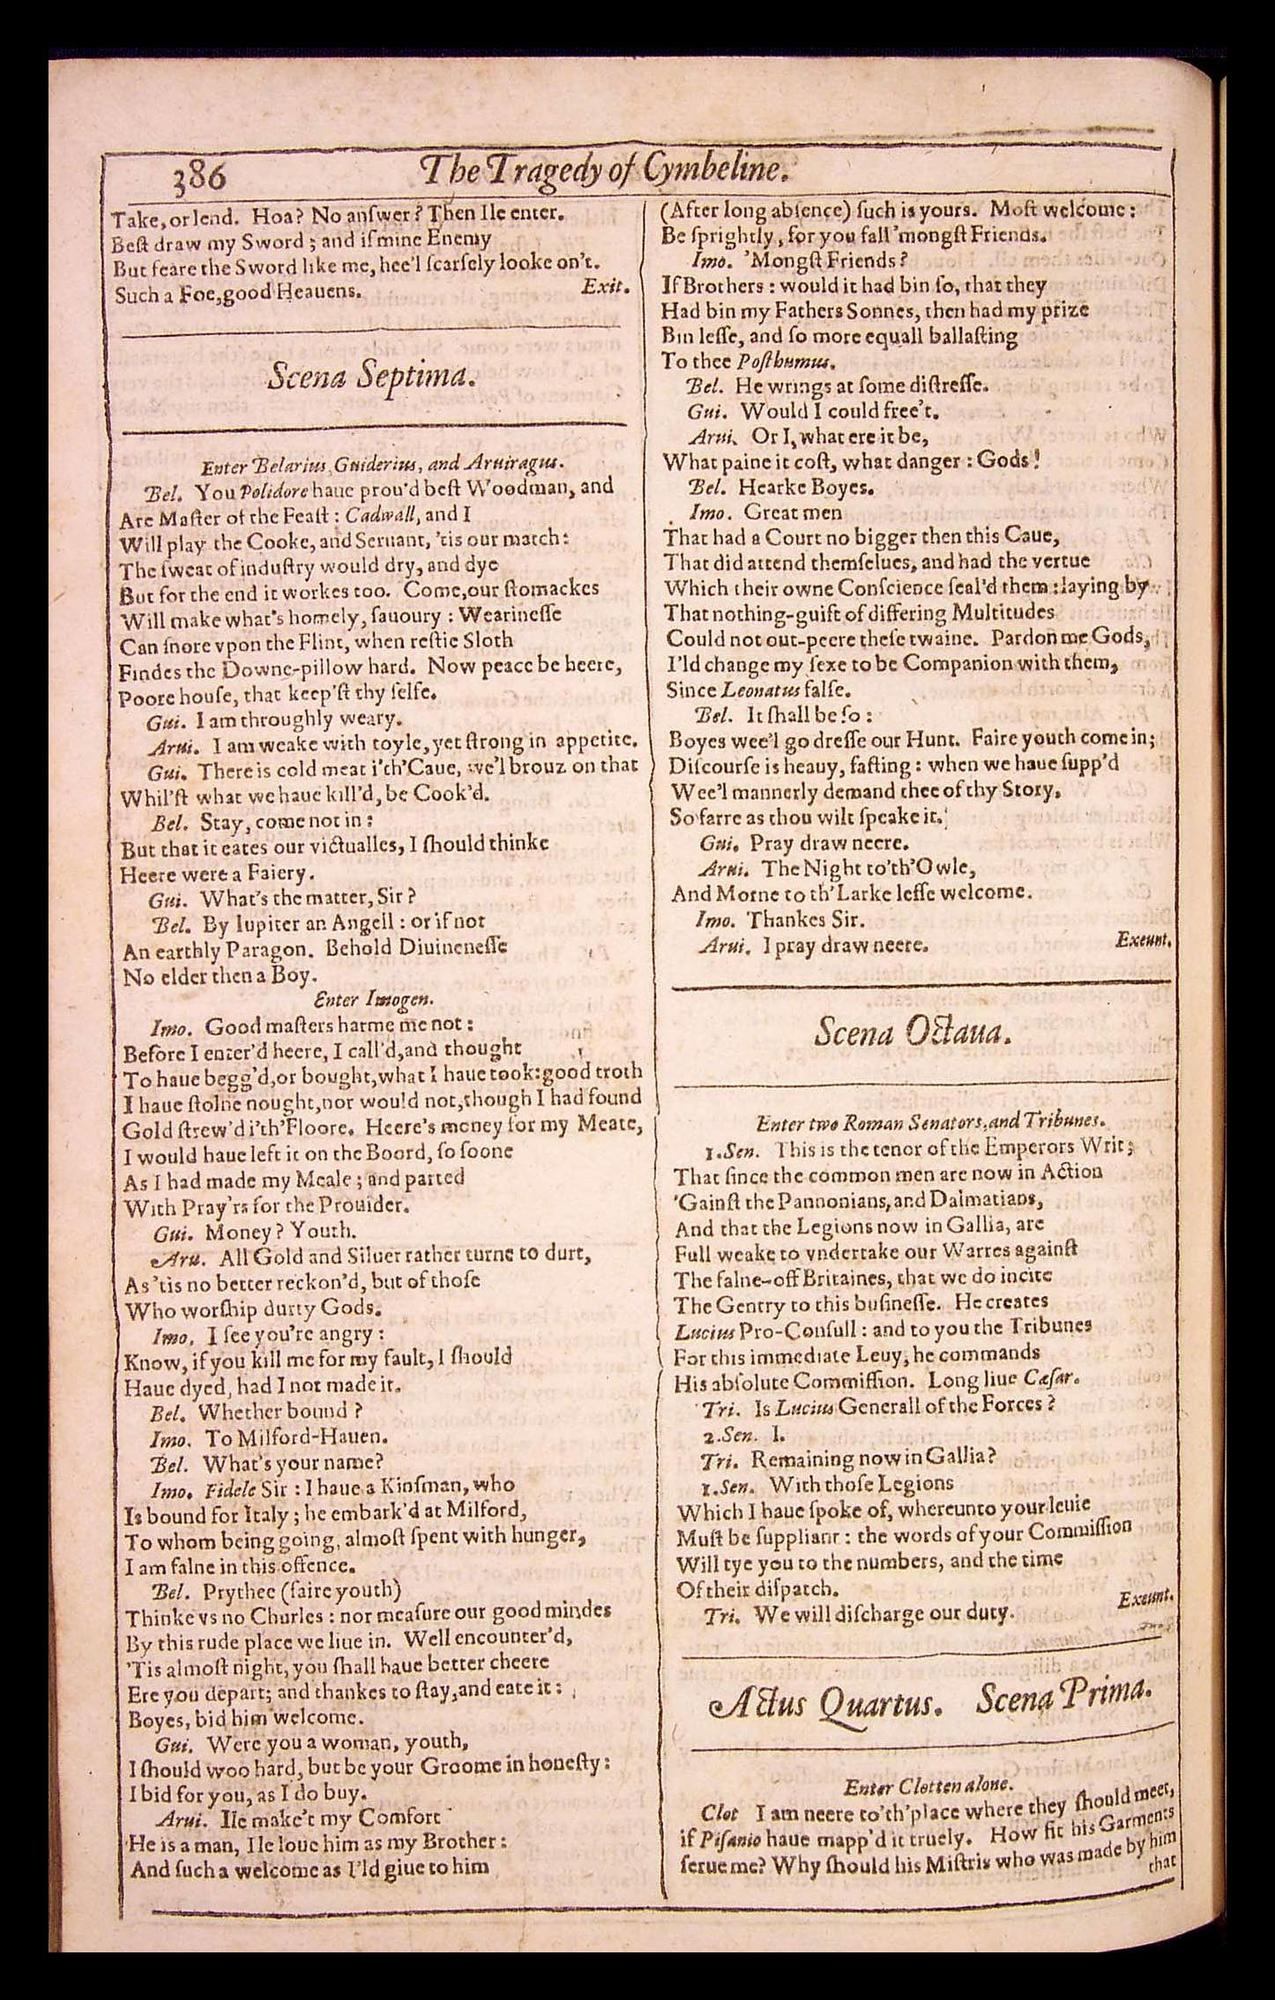 386
The Tragedy of Cymbeline.
Take, or lend. Hoa? No anſwer? Then Ile enter.
Beſt draw my Sword; and if mine Enemy
But feare the Sword like me, hee'l ſcarſely looke on't.
Such a Foe, good Heauens. Exit.
Scena Septima.
Enter Belarius, Guiderius, and Aruiragus.
Bel. You Polidore haue prou'd beſt Woodman, and
Are Maſter of the Feaſt: Cadwall, and I
Will play the Cooke, and Seruant, 'tis our match:
The ſweat of induſtry would dry, and dye
But for the end it workes too. Come, our ſtomackes
Will make what's homely, ſauoury: Wearineſſe
Can ſnore vpon the Flint, when reſtie Sloth
Findes the Downe-pillow hard. Now peace be heere,
Poore houſe, that keep'ſt thy ſelfe.
Gui. I am throughly weary.
Arui. I am weake with toyle, yet ſtrong in appetite.
Gui. There is cold meat i'th'Caue, we'l brouz on that
Whil'ſt what we haue kill'd, be Cook'd.
Bel. Stay, come not in:
But that it eates our victualles, I ſhould thinke
Heere were a Faiery.
Gui. What's the matter, Sir?
Bel. By Iupiter an Angell: or if not
An earthly Paragon. Behold Diuineneſſe
No elder then a Boy.
Enter Imogen.
Imo. Good maſters harme me not:
Before I enter'd heere, I call'd, and thought
To haue begg'd, or bought, what I haue took: good troth
I haue ſtolne nought, nor would not, though I had found
Gold ſtrew'd i'th'Floore. Heere's money for my Meate,
I would haue left it on the Boord, ſo ſoone
As I had made my Meale; and parted
With Pray'rs for the Prouider.
Gui. Money? Youth.
Aru. All Gold and Siluer rather turne to durt,
As 'tis no better reckon'd, but of thoſe
Who worſhip durty Gods.
Imo. I ſee you're angry:
Know, if you kill me for my fault, I ſhould
Haue dyed, had I not made it.
Bel. Whether bound?
Imo. To Milford-Hauen.
Bel. What's your name?
Imo. Fidele Sir: I haue a Kinſman, who
Is bound for Italy; he embark'd at Milford,
To whom being going, almoſt ſpent with hunger,
I am falne in this offence.
Bel. Prythee (faire youth)
Thinke vs no Churles: nor meaſure our good mindes
By this rude place we liue in. Well encounter'd,
'Tis almoſt night, you ſhall haue better cheere
Ere you depart; and thankes to ſtay, and eate it:
Boyes, bid him welcome.
Gui. Were you a woman, youth,
I ſhould woo hard, but be your Groome in honeſty:
I bid for you, as I do buy.
Arui. Ile make't my Comfort
He is a man, Ile loue him as my Brother:
And ſuch a welcome as I'ld giue to him
(After long abſence) ſuch is yours. Moſt welcome:
Be ſprightly, for you fall 'mongſt Friends.
Imo. 'Mongſt Friends?
If Brothers: would it had bin ſo, that they
Had bin my Fathers Sonnes, then had my prize
Bin leſſe, and ſo more equall ballaſting
To thee Poſthumus.
Bel. He wrings at ſome diſtreſſe.
Gui. Would I could free't.
Arui. Or I, what ere it be,
What paine it coſt, what danger: Gods!
Bel. Hearke Boyes.
Imo. Great men
That had a Court no bigger then this Caue,
That did attend themſelues, and had the vertue
Which their owne Conſcience ſeal'd them: laying by
That nothing-guift of differing Multitudes
Could not out-peere theſe twaine. Pardon me Gods,
I'ld change my ſexe to be Companion with them,
Since Leonatus falſe.
Bel. It ſhall be ſo:
Boyes wee'l go dreſſe our Hunt. Faire youth come in;
Diſcourſe is heauy, faſting: when we haue ſupp'd
Wee'l mannerly demand thee of thy Story,
So farre as thou wilt ſpeake it.
Gui. Pray draw neere.
Arui. The Night to'th'Owle,
And Morne to th'Larke leſſe welcome.
Imo. Thankes Sir.
Arui. I pray draw neere. Exeunt.
Scena Octaua.
Enter two Roman Senators, and Tribunes.
1.Sen. This is the tenor of the Emperors Writ;
That ſince the common men are now in Action
'Gainſt the Pannonians, and Dalmatians,
And that the Legions now in Gallia, are
Full weake to vndertake our Warres againſt
The falne-off Britaines, that we do incite
The Gentry to this buſineſſe. He creates
Lucius Pro-Conſull: and to you the Tribunes
For this immediate Leuy, he commands
His abſolute Commiſſion. Long liue Cæſar.
Tri. Is Lucius Generall of the Forces?
2.Sen. I.
Tri. Remaining now in Gallia?
1.Sen. With thoſe Legions
Which I haue ſpoke of, whereunto your leuie
Muſt be ſuppliant: the words of your Commiſſion
Will tye you to the numbers, and the time
Of their diſpatch.
Tri. We will diſcharge our duty. Exeunt.
Actus Quartus. Scena Prima.
Enter Clotten alone.
Clot I am neere to'th'place where they ſhould meet,
if Piſanio haue mapp'd it truely. How fit his Garments
ſerue me? Why ſhould his Miſtris who was made by him
that